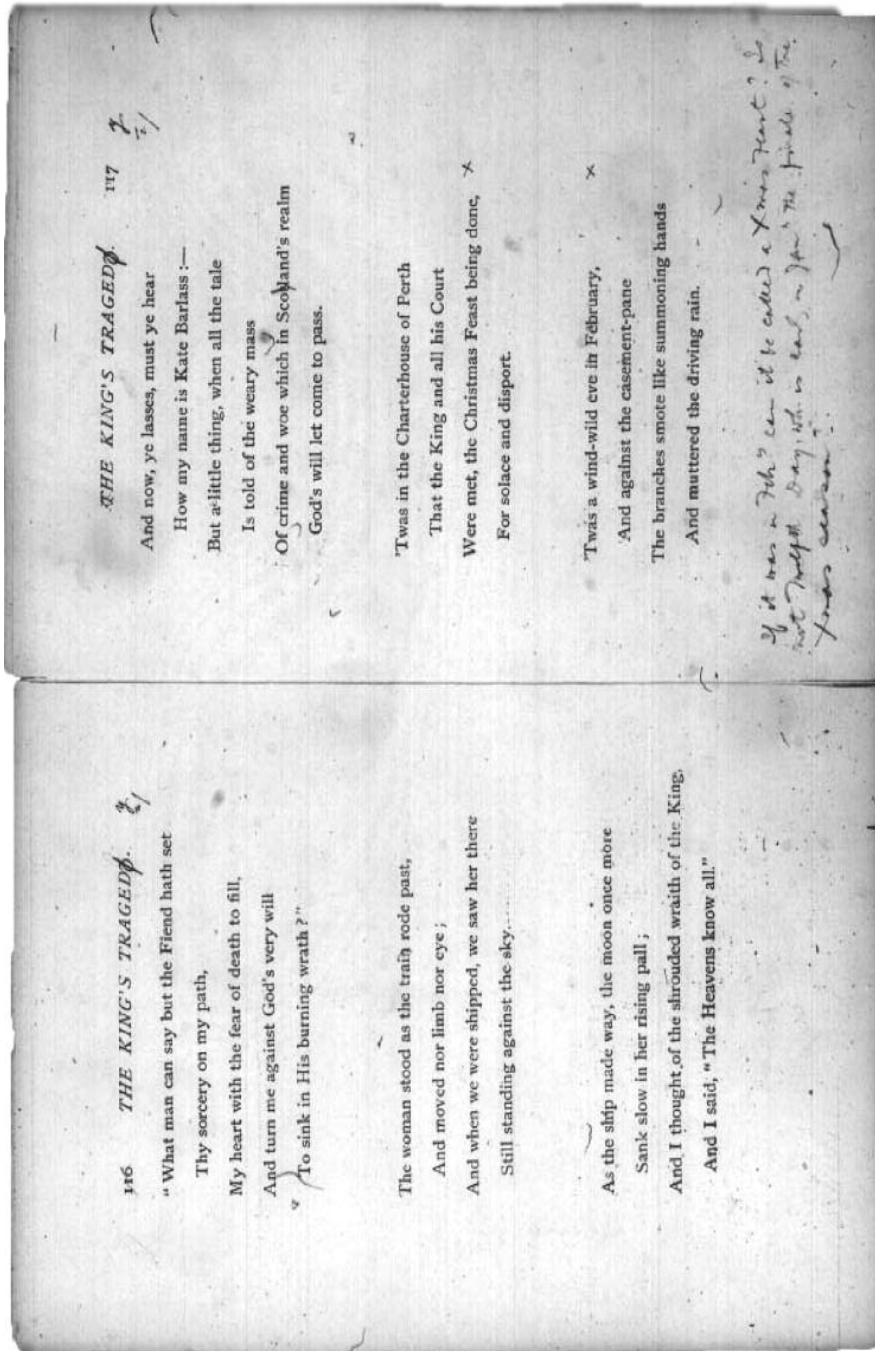 116 THE KING'S TRAGEDY.
"What man can say but the Fiend hath set
Thy sorcery on my path,
My heart with the fear of death to fill,
And turn me against God's very will
To sink in His burning wrath?"
The woman stood as the train rode past,
And moved nor limb nor eye;
And when we were shipped, we saw her there
Still standing against the sky.
As the ship made way, the moon once more
Sank slow in her rising pall;
And I thought of the shrouded wraith of the King,
And I said, "The Heavens know all."
THE KING'S TRAGEDY. 117
And now, ye lasses, must ye hear
How my name is Kate Barlass:—
But a little thing, when all the tale
Is told of the weary mass
Of crime and woe which in Scotland's realm
God's will let come to pass.
'Twas in the Charterhouse of Perth
That the King and all his Court
Were met, the Christmas Feast being done, x
For solace and disport.
'Twas a wind-wild eve in February, x
And against the casement-pane
The branches smote like summoning hands
And muttered the driving rain.
If it was in Feb? can it be called a Xmas Feast? Is
not Twelfth Day, wh. is early in Jany the finale of the
Xmas season?